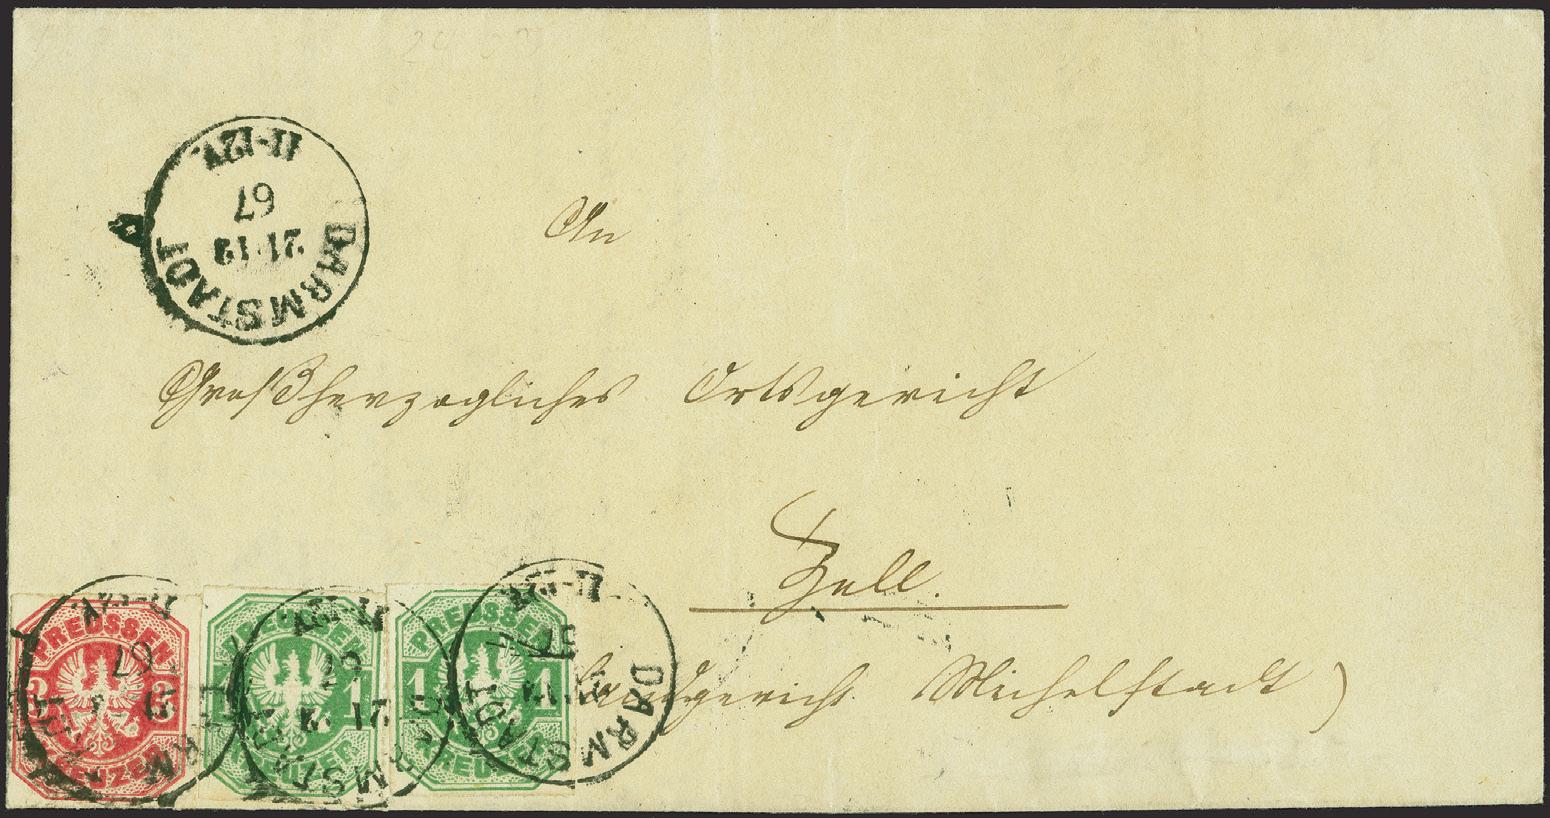 DARMSTADT
21·12
67
11-12V.
An
Großherzogliches Ortsgericht
Zell.
Landgericht Michelstadt)
PREUSSEN
3 3
KREUZER
PREUSSEN
1 1
KREUZER
PREUSSEN
1 1
KREUZER
DARMSTADT
67
11-12V.
DARMSTADT
21 12
67
11-12V.
DARMSTADT
21 12
67
11-12V.